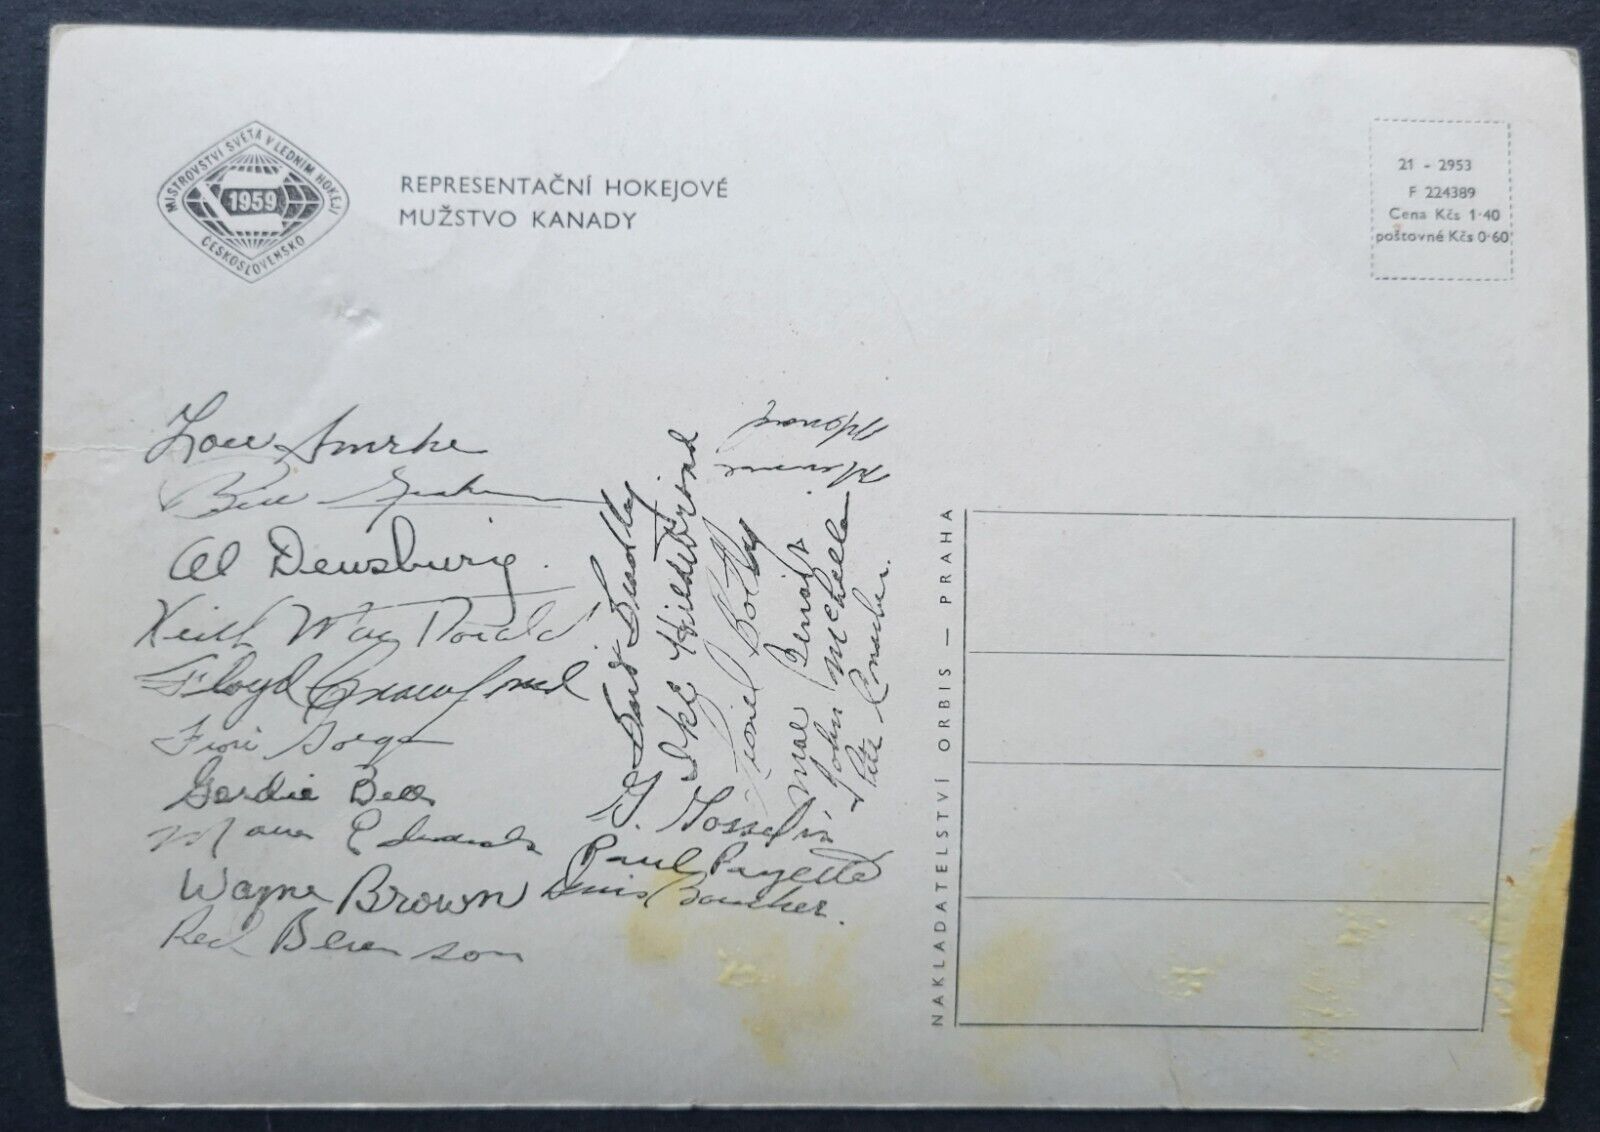 MISTROVSTVÍ SVĚTA V LEDNÍM HOKEJI
1959
ČESKOSLOVENSKO
REPRESENTAČNÍ HOKEJOVÉ
MUŽSTVO KANADY
21 - 2953
F 224389
Cena Kčs 1·40
poštovné Kčs 0·60
Lou Smrke
Bill Graham
Al Dewsbury.
Keith MacDonald
Floyd Crawford
Fiori Goegan
Gordie Bell
Edwards
Wayne Brown
Red Berenson
Ike Hildebrand
Lionel Botly
Moe Benoit
John McLellan
Pete Conacher.
G. Gosselin
Paul Payette
Denis Boucher.
NAKLADATELSTVÍ ORBIS — PRAHA